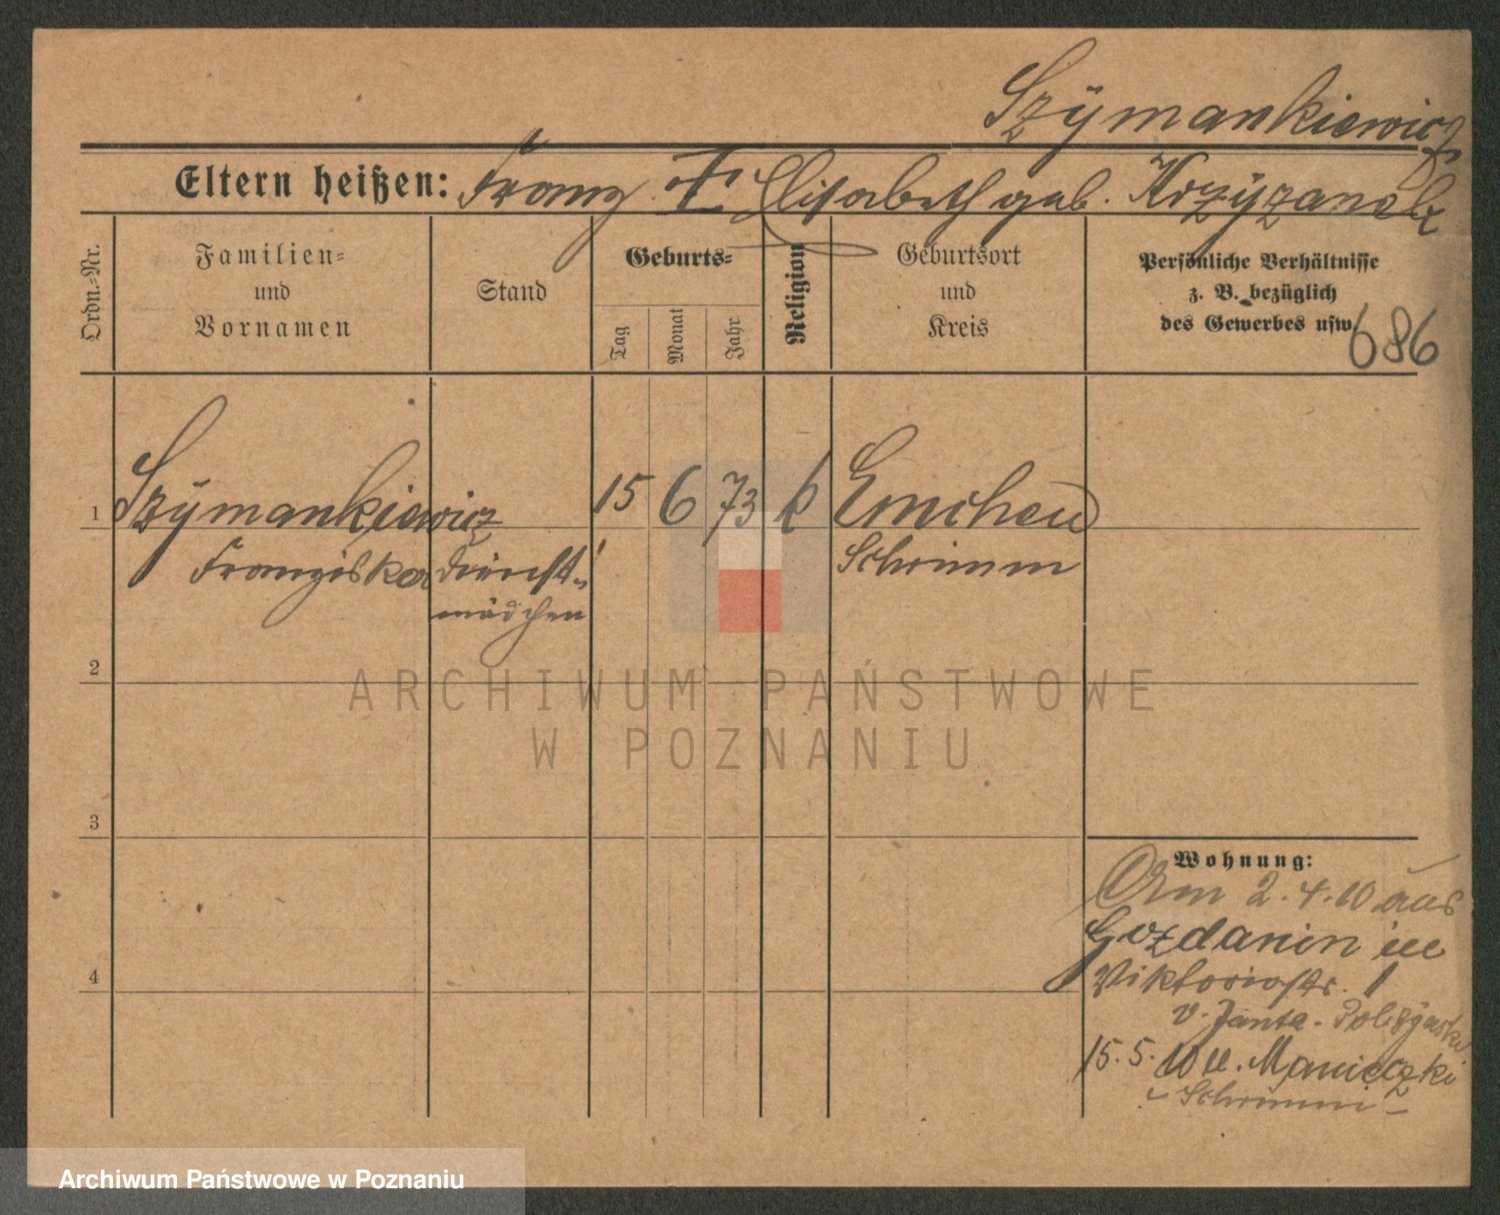 Szÿmankiewicz
Eltern heißen: Franz Elisabeth geb.
Ordn.-Nr.
Familien-
und
Vornamen
Stand
Geburts-
Tag
Monat
Jahr
Religion
Geburtsort
und
Kreis
Persönliche Verhältnisse
z. B. bezüglich
des Gewerbes usw.
686
1
Szÿmankiewicz
Franziska
Dienst-
mädchen
15 6 73 k
Emchen
Schrimm
2
3
4
Wohnung:
Am 2.4.10 aus
Gozdanin in
Viktoriastr. 1
v. Janta-
15.5. 10 n. Manieczki
- Schrimm -
ARCHIWUM PAŃSTWOWE
W POZNANIU
Archiwum Państwowe w Poznaniu